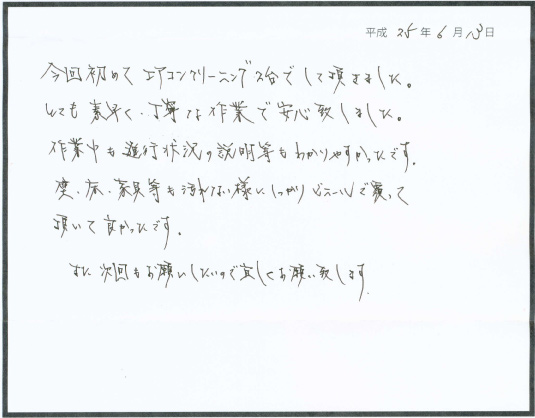 平成 25 年 6 月 13 日
今回初めてエアコンクリーニング2台でして頂きました。
とても素早く、丁寧な作業で安心致しました。
作業中も進行状況の説明等もわかりやすかったです。
壁、床、家具等も汚れない様にしっかりビニールで覆って
頂いて良かったです。
また次回もお願いしたいので宜しくお願い致します。